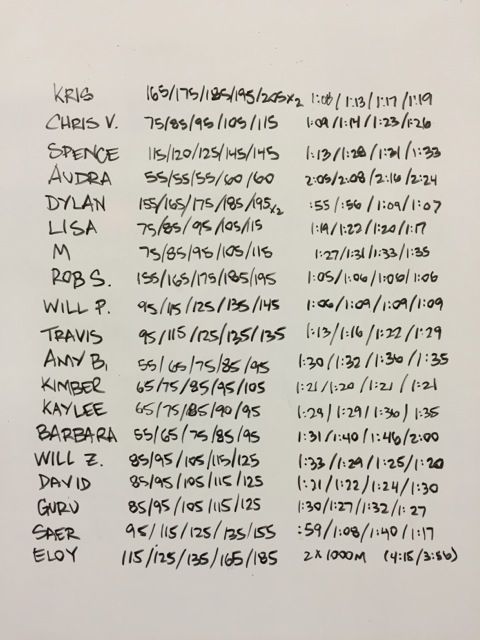 KRIS 165/175/185/195/205x2 1:08/1:13/1:17/1:19
CHRIS V. 75/85/95/105/115 1:09/1:14/1:23/1:26
SPENCE 115/120/125/145/145 1:13/1:28/1:31/1:33
AUDRA 55/55/55/60/60 2:05/2:08/2:16/2:24
DYLAN 155/165/175/185/195x2 :55/:56/1:09/1:07
LISA 75/85/95/105/115 1:19/1:22/1:20/1:17
M 75/85/95/105/115 1:27/1:31/1:33/1:35
ROB S. 155/165/175/185/195 1:05/1:06/1:06/1:06
WILL P. 95/115/125/135/145 1:06/1:09/1:09/1:09
TRAVIS 95/115/125/135/135 1:13/1:16/1:22/1:29
AMY B. 55/65/75/85/95 1:30/1:32/1:36/1:35
KIMBER 65/75/85/95/105 1:21/1:20/1:21/1:21
KAYLEE 65/75/85/90/95 1:29/1:29/1:36/1:35
BARBARA 55/65/75/85/95 1:31/1:40/1:46/2:00
WILL Z. 85/95/105/115/125 1:33/1:29/1:25/1:20
DAVID 85/95/105/115/125 1:21/1:22/1:24/1:30
GURU 85/95/105/115/125 1:30/1:27/1:32/1:27
SAER 95/115/125/135/155 :59/1:08/1:40/1:17
ELOY 115/125/135/165/185 2x1000M (4:15/3:56)